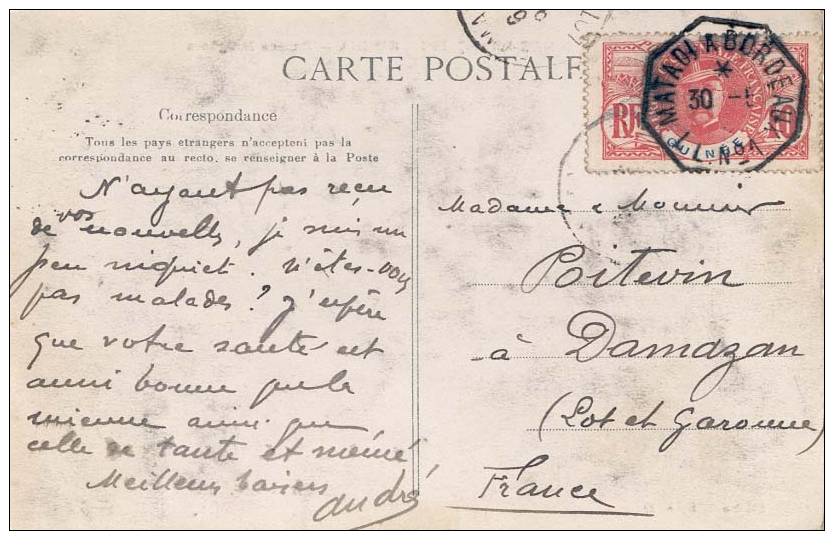 CARTE POSTALE
MATADI A BORDEAUX
30
L.L.No1
RF
GUINÉE
10
Correspondance
Tous les pays étrangers n'acceptent pas la
correspondance au recto. se renseigner à la Poste
N'ayant pas reçu
de vos nouvelles, je suis un
peu niquiet. N'êtes-vous
pas malades? J'espère
que votre santé est
aussi bonne que la
mienne ainsi que
celle de tante et mémé
Meilleurs baisers
André
Madame & Monsieur
Poitevin
à Damazan
(Lot et Garonne)
France